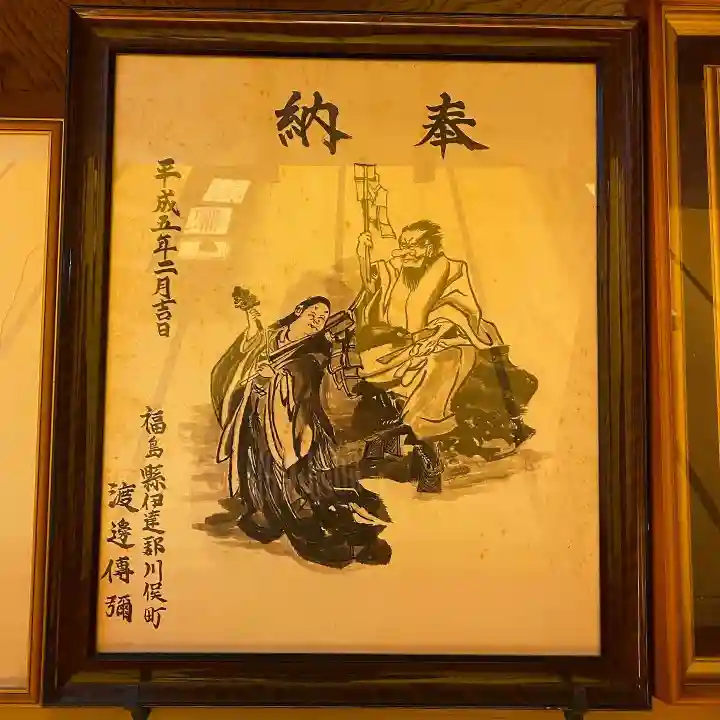 奉納
平成五年二月吉日
福島縣伊達郡川俣町
渡邉傳彌